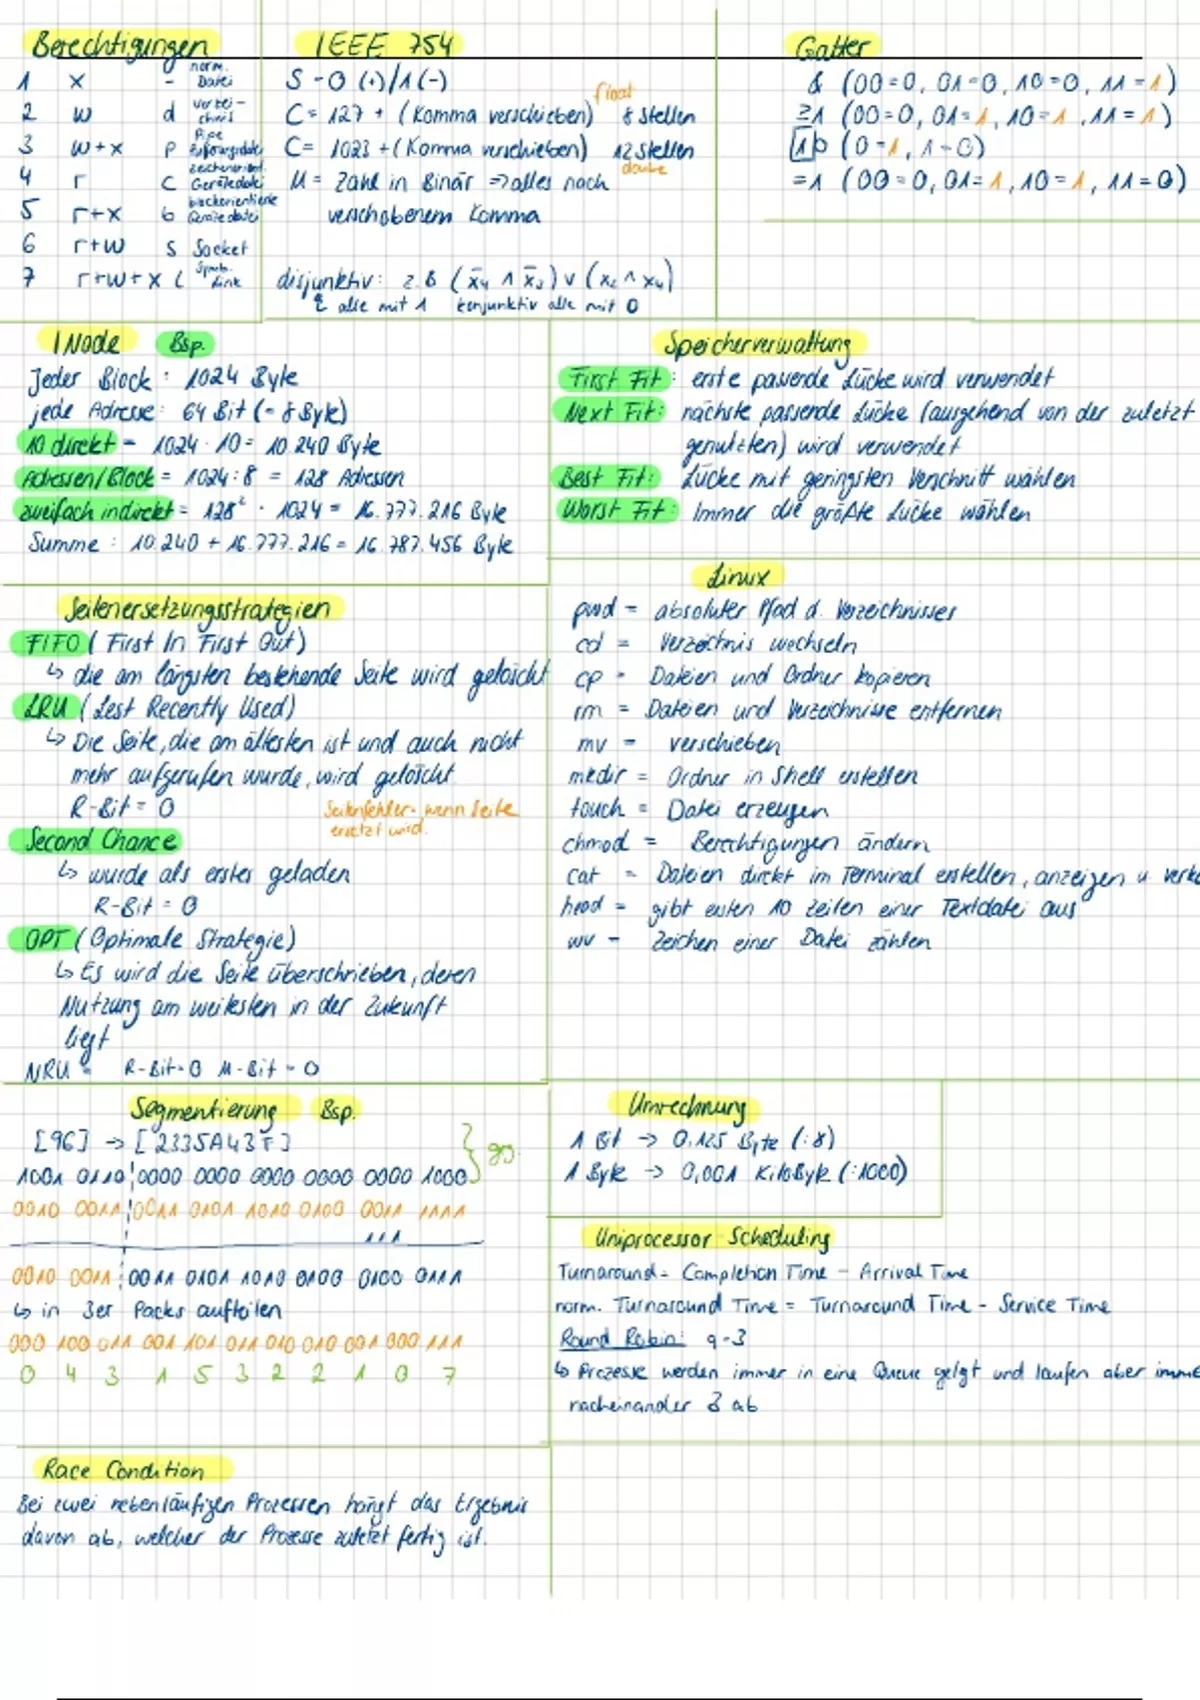 Berechtigungen
1 x - norm. Datei
2 w d Verzei-chnis
3 w+x p Pipe Pufferungsdatei
4 r c zeichenorient. Gerätedatei
5 r+x b blockorientierte Gerätedatei
6 r+w s Socket
7 r+w+x l Symb. Link
IEEE 754
S - 0 (+)/1 (-)
C = 127 + (Komma verschieben) float 8 Stellen
C = 1023 + (Komma verschieben) 12 Stellen
M = Zahl in Binär => alles nach
verschobenem Komma
disjunktiv: z.B (x̄4 ∧ x̄3) ∨ (x2 ∧ x4)
alle mit 1 konjunktiv alle mit 0
Gatter
& (00=0, 01=0, 10=0, 11=1)
≥1 (00=0, 01=1, 10=1, 11=1)
1 (0=1, 1=0)
=1 (00=0, 01=1, 10=1, 11=0)
INode Bsp.
Jeder Block: 1024 Byte
jede Adresse: 64 Bit (= 8 Byte)
10 direkt = 1024 · 10 = 10.240 Byte
Adressen/Block = 1024 : 8 = 128 Adressen
zweifach indirekt = 128² · 1024 = 16.777.216 Byte
Summe: 10.240 + 16.777.216 = 16.787.456 Byte
Speicherverwaltung
First Fit: erste passende Lücke wird verwendet
Next Fit: nächste passende Lücke (ausgehend von der zuletzt
genutzten) wird verwendet
Best Fit: Lücke mit geringsten Verschnitt wählen
Worst Fit: Immer die größte Lücke wählen
Seitenersetzungsstrategien
FIFO (First In First Out)
↳ die am längsten bestehende Seite wird gelöscht
LRU (Lest Recently Used)
↳ Die Seite, die am ältesten ist und auch nicht
mehr aufgerufen wurde, wird gelöscht
R-Bit = 0
Seitenfehler - wenn Seite
ersetzt wird.
Second Chance
↳ wurde als erstes geladen
R-Bit = 0
OPT (Optimale Strategie)
↳ Es wird die Seite überschrieben, deren
Nutzung am weitesten in der Zukunft
liegt
NRU = R-Bit=0 M-Bit=0
Linux
pwd = absoluter Pfad d. Verzeichnisses
cd = Verzeichnis wechseln
cp = Dateien und Ordner kopieren
rm = Dateien und Verzeichnisse entfernen
mv = verschieben
mkdir = Ordner in Shell erstellen
touch = Datei erzeugen
chmod = Berechtigungen ändern
cat = Dateien direkt im Terminal erstellen, anzeigen u. verk
head = gibt ersten 10 Zeilen einer Textdatei aus
wv = Zeichen einer Datei zählen
Segmentierung Bsp.
[96] → [2335A43F]
1001 0110 0000 0000 0000 0000 0000 1000
0010 0011 0011 0101 1010 0100 0011 1111
111
0010 0011 0011 0101 1010 0100 0100 0111
↳ in 3er Packs aufteilen
000 100 011 001 101 011 010 010 001 000 111
0 4 3 1 5 3 2 2 1 0 7
Umrechnung
1 Bit → 0,125 Byte (:8)
1 Byte → 0,001 KiloByte (:1000)
Uniprocessor Scheduling
Turnaround = Completion Time - Arrival Time
norm. Turnaround Time = Turnaround Time - Service Time
Round Robin: q=3
↳ Prozesse werden immer in eine Queue gelgt und laufen aber imme
nacheinander 3 ab
Race Condition
Bei zwei nebenläufigen Prozessen hängt das Ergebnis
davon ab, welcher der Prozesse zuletzt fertig ist.